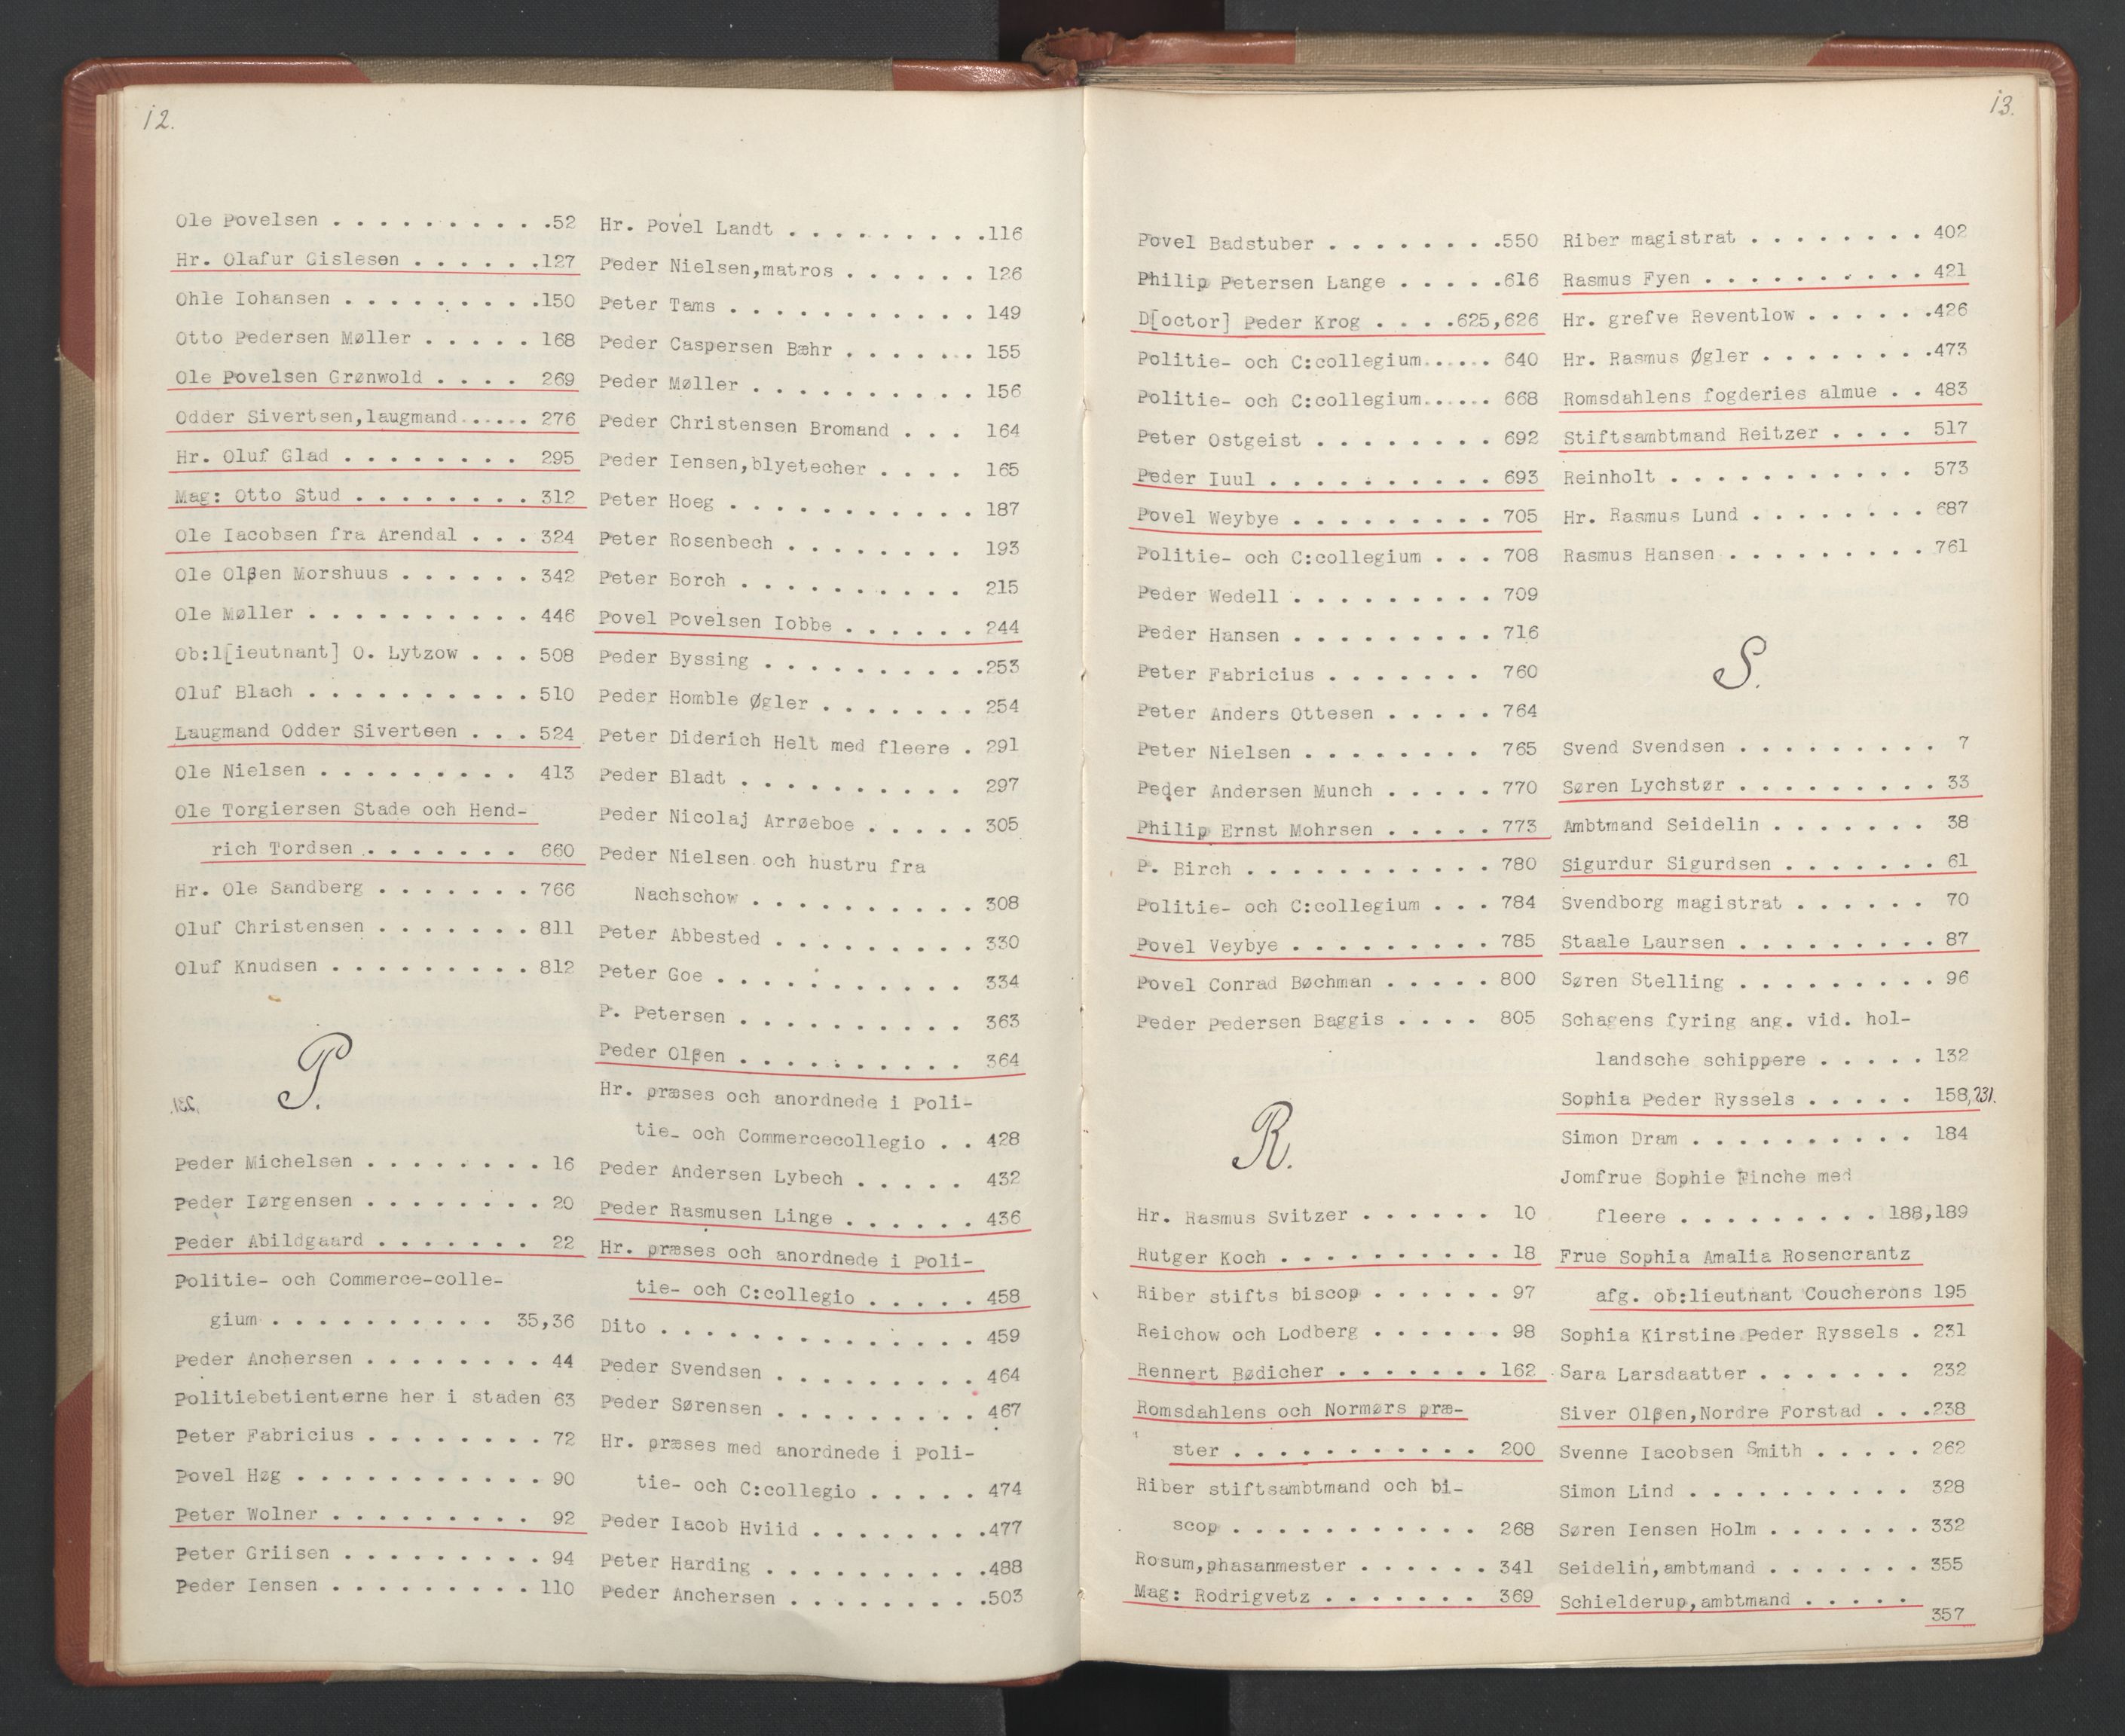 12.
Ole Povelsen . . . . . . . . . . .52
Hr. Olafur Gislesen . . . . . .127
Ohle Iohansen . . . . . . . . .150
Otto Pedersen Møller . . . . . 168
Ole Povelsen Grønwold . . . . 269
Odder Sivertsen,laugmand . . . . . 276
Hr. Oluf Glad . . . . . . . . 295
Mag: Otto Stud . . . . . . . . 312
Ole Iacobsen fra Arendal . . . 324
Ole Olβen Morshuus . . . . . . 342
Ole Møller . . . . . . . . . . 446
Ob:l[ieutnant] O. Lytzow . . . 508
Oluf Blach . . . . . . . . . . 510
Laugmand Odder Sivertsen . . . 524
Ole Nielsen . . . . . . . . . 413
Ole Torgiersen Stade och Hend-
rich Tordsen . . . . . . . 660
Hr. Ole Sandberg . . . . . . . 766
Oluf Christensen . . . . . . . 811
Oluf Knudsen . . . . . . . . . 812
P.
Peder Michelsen . . . . . . . . 16
Peder Iørgensen . . . . . . . . 20
Peder Abildgaard . . . . . . . 22
Politie- och Commerce-colle-
gium . . . . . . . . . . 35,36
Peder Anchersen . . . . . . . . 44
Politiebetienterne her i staden 63
Peter Fabricius . . . . . . . . 72
Povel Høg . . . . . . . . . . . 90
Peter Wolner . . . . . . . . . 92
Peter Griisen . . . . . . . . . 94
Peder Iensen . . . . . . . . . 110
Hr. Povel Landt . . . . . . . . .116
Peder Nielsen,matros . . . . . . 126
Peter Tams . . . . . . . . . . . 149
Peder Caspersen Bæhr . . . . . . 155
Peder Møller . . . . . . . . . . 156
Peder Christensen Bromand . . . 164
Peder Iensen,blyetecher . . . . 165
Peter Hoeg . . . . . . . . . . . 187
Peter Rosenbech . . . . . . . . 193
Peter Borch . . . . . . . . . . 215
Povel Povelsen Iobbe . . . . . . 244
Peder Byssing . . . . . . . . . .253
Peder Homble Øgler . . . . . . . 254
Peter Diderich Helt med fleere . 291
Peder Bladt . . . . . . . . . . 297
Peder Nicolaj Arrøeboe . . . . . 305
Peder Nielsen och hustru fra
Nachschow . . . . . . . . . . 308
Peter Abbested . . . . . . . . . 330
Peter Goe . . . . . . . . . . . 334
P. Petersen . . . . . . . . . . 363
Peder Olβen . . . . . . . . . . 364
Hr. præses och anordnede i Poli-
tie- och Commercecollegio . . 428
Peder Andersen Lybech . . . . . 432
Peder Rasmusen Linge . . . . . . 436
Hr. præses och anordnede i Poli-
tie- och C:collegio . . . . . 458
Dito . . . . . . . . . . . . . . 459
Peder Svendsen . . . . . . . . . 464
Peder Sørensen . . . . . . . . . 467
Hr. præses med anordnede i Poli-
tie- och C:collegio . . . . . 474
Peder Iacob Hviid . . . . . . . .477
Peter Harding . . . . . . . . . .488
Peder Anchersen . . . . . . . . .503
13.
Povel Badstuber . . . . . . . .550
Philip Petersen Lange . . . . .616
D[octor] Peder Krog . . . .625,626
Politie- och C:collegium . . . . . 640
Politie- och C:collegium . . . . . 668
Peter Ostgeist . . . . . . . . 692
Peder Iuul . . . . . . . . . . 693
Povel Weybye . . . . . . . . . 705
Politie- och C:collegium . . . 708
Peder Wedell . . . . . . . . . 709
Peder Hansen . . . . . . . . . 716
Peter Fabricius . . . . . . . 760
Peter Anders Ottesen . . . . . 764
Peter Nielsen . . . . . . . . 765
Peder Andersen Munch . . . . . 770
Philip Ernst Mohrsen . . . . . 773
P. Birch . . . . . . . . . . . 780
Politie- och C:collegium . . . 784
Povel Veybye . . . . . . . . . 785
Povel Conrad Bøchman . . . . . 800
Peder Pedersen Baggis . . . . 805
R.
Hr. Rasmus Svitzer . . . . . . 10
Rutger Koch . . . . . . . . . . 18
Riber stifts biscop . . . . . . 97
Reichow och Lodberg . . . . . . 98
Rennert Bødicher . . . . . . . 162
Romsdahlens och Normørs præ-
ster . . . . . . . . . . . 200
Riber stiftsambtmand och bi-
scop . . . . . . . . . . . 268
Rosum,phasanmester . . . . . . 341
Mag: Rodrigvetz . . . . . . . 369
Riber magistrat . . . . . . . . 402
Rasmus Fyen . . . . . . . . . . 421
Hr. grefve Reventlow . . . . . .426
Hr. Rasmus Øgler . . . . . . . .473
Romsdahlens fogderies almue . . 483
Stiftsambtmand Reitzer . . . . 517
Reinholt . . . . . . . . . . . 573
Hr. Rasmus Lund . . . . . . . . 687
Rasmus Hansen . . . . . . . . . 761
S.
Svend Svendsen . . . . . . . . . 7
Søren Lychstør . . . . . . . . . 33
Ambtmand Seidelin . . . . . . . 38
Sigurdur Sigurdsen . . . . . . . 61
Svendborg magistrat . . . . . . 70
Staale Laursen . . . . . . . . . 87
Søren Stelling . . . . . . . . . 96
Schagens fyring ang. vid. hol-
landsche schippere . . . . . 132
Sophia Peder Ryssels . . . . . 158,231.
Simon Dram . . . . . . . . . . 184
Jomfrue Sophie Finche med
fleere . . . . . . . . . 188,189
Frue Sophia Amalia Rosencrantz
afg. ob:lieutnant Coucherons 195
Sophia Kirstine Peder Ryssels . 231
Sara Larsdaatter . . . . . . . 232
Siver Olβen,Nordre Forstad . . .238
Svenne Iacobsen Smith . . . . . 262
Simon Lind . . . . . . . . . . 328
Søren Iensen Holm . . . . . . . 332
Seidelin,ambtmand . . . . . . . 355
Schielderup,ambtmand . . . . .
357